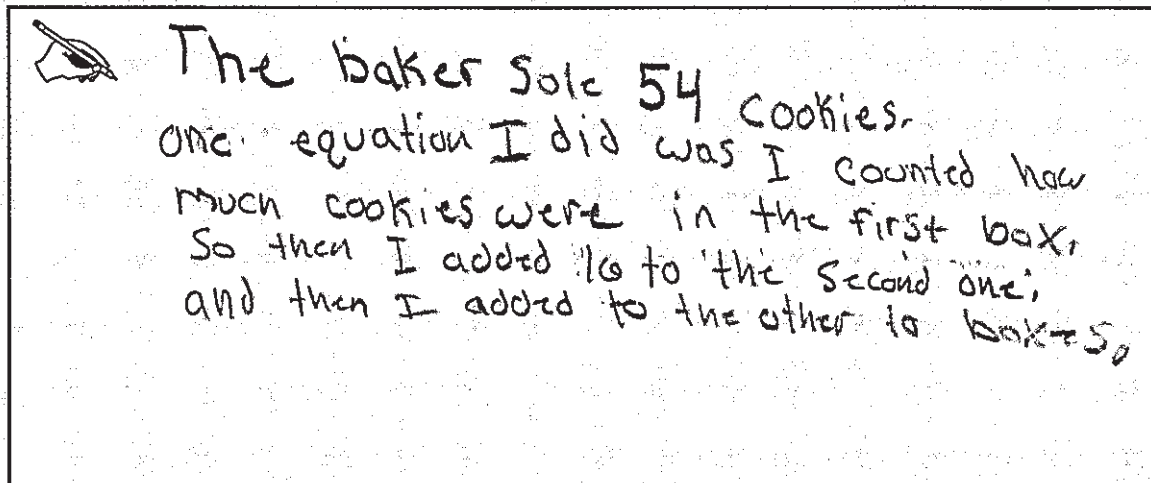 The baker Sole 54 cookies.
one equation I did was I counted how
much cookies were in the first box,
So then I added 16 to the second one,
and then I added to the other to boxes.